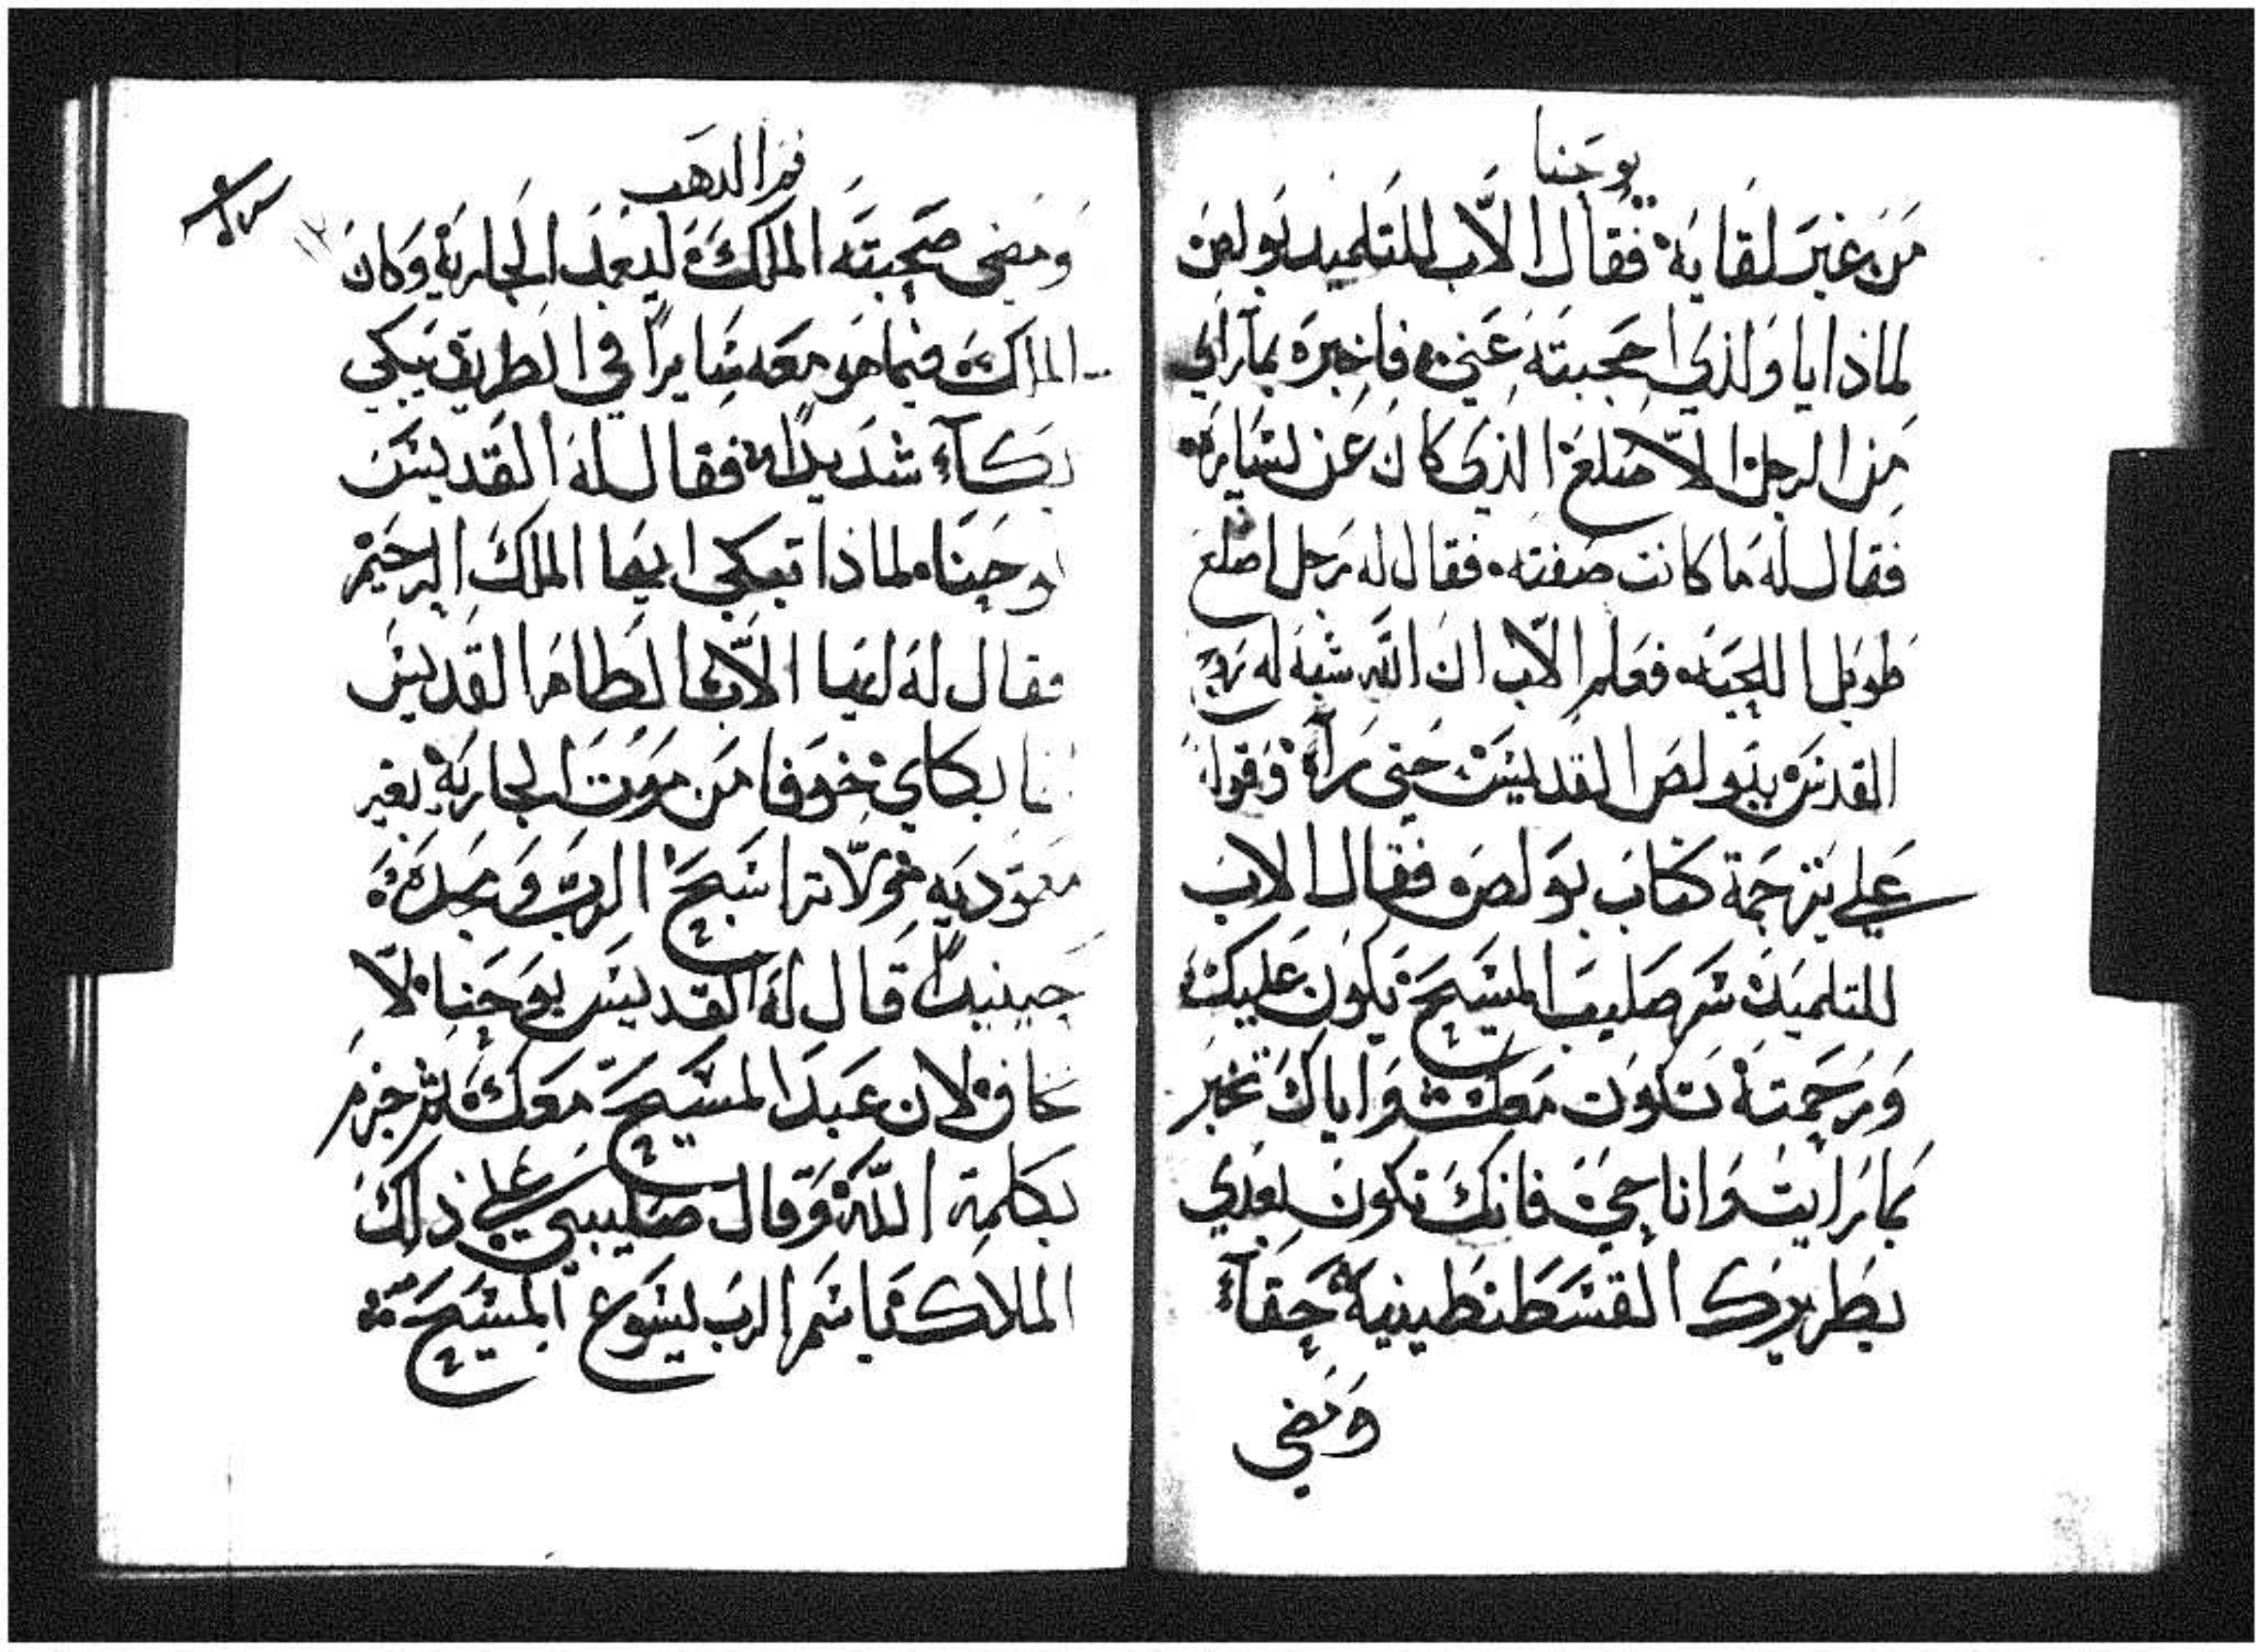 يوحنا
من غير لقايه فقال الاب للتلميد بولص
لماذا ياولذي احجبته عني فاخبره بمارآي
من الرجل الاصلع الذي كان عن لسايره
فقال له ما كانت صفته فقال له رجل اصلع
طويل اللحيه فعلم الاب ان الله شبه له روح
القدس ببولص القديس حتى رآه وقوله
على ترجمة كتاب بولص فقال الاب
للتلميد سر صليب المسيح يكون عليك
ورحمته تكون معك واياك تخبر
بما رايت وانا حي فانك تكون بعدي
بطريرك القسطنطينية حقآ
ومضي
فم الدهب
ومضى صحبته الملك ليعمد الجارية وكان
الملك فيما هو معه سايرًا في الطريق يبكي
بكآء شديدًا فقال له القديس
يوحنا لماذا تبكي ايها الملك الرحيم
فقال له ايها الاب الطاهر القديس
انا بكاي خوفا من موت الجارية بغير
معموديه اسبح الرب ومجده
حينيدًا قال له القديس يوحنا لا
تخاف لان عبد المسيح معك ثم حزم
بكلمة الله وقال صليبي على ذلك
الملاك باسم الرب يسوع المسيح